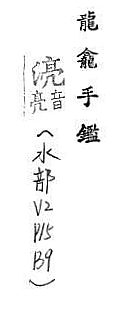 龍龕手鑑
湸音亮(水部V2P15B9)